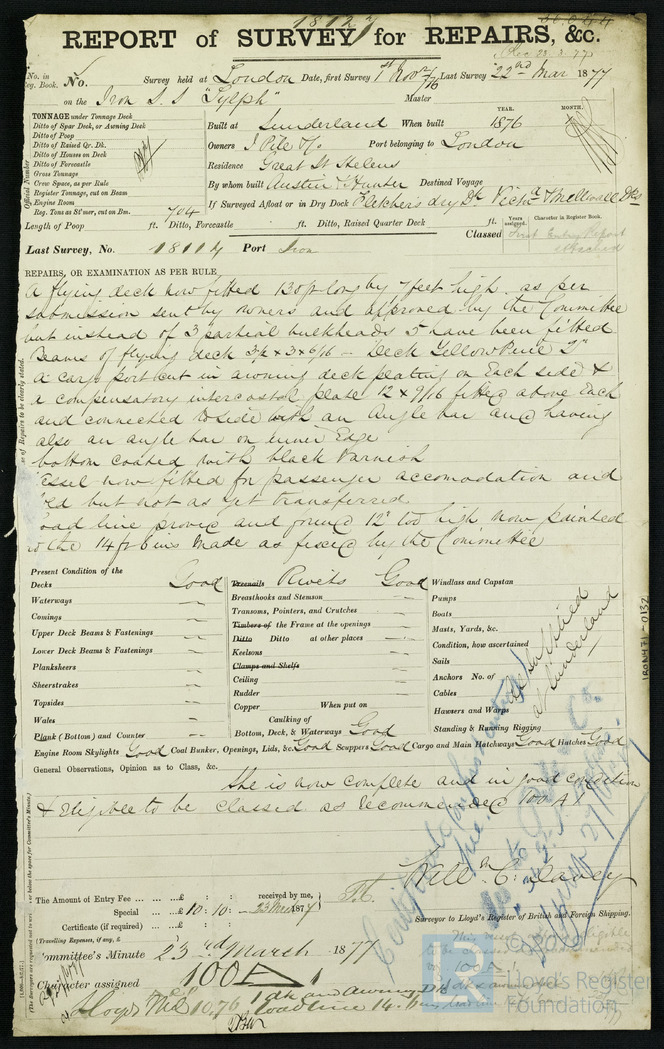 18127
REPORT of SURVEY for REPAIRS, &c.
Rec 23.3.77
No. in Reg. Book. No. Survey held at London Date, first Survey 1st Novr /76 Last Survey 22nd Mar 1877
on the Iron S. S "Sylph" Master
TONNAGE under Tonnage Deck
Ditto of Spar Deck, or Awning Deck
Ditto of Poop
Ditto of Raised Qr. Dk.
Ditto of Houses on Deck
Ditto of Forecastle
Gross Tonnage
Crew Space, as per Rule
Register Tonnage, cut on Beam
Engine Room
Reg. Tons as St'mer, cut on Bm. 704
Official Number
YEAR. MONTH.
Built at Sunderland When built 1876
Owners J Pile & Co Port belonging to London
Residence Great St Helens
By whom built Austin & Hunter Destined Voyage
If Surveyed Afloat or in Dry Dock Fletchers dry Dk Vict. & Millwall Dks
Length of Poop ft. Ditto, Forecastle ft. Ditto, Raised Quarter Deck ft.
Years assigned. Character in Register Book.
Classed First Entry Report attached
Last Survey, No. 18114 Port Iron
REPAIRS, OR EXAMINATION AS PER RULE
A flying deck now fitted 130ft long by 7 feet high as per
submission sent by owners and approved by the Committee
but instead of 3 partial bulkheads 5 have been fitted
Beams of flying deck 3½ x 3 x 6/16 - Deck Yellow Pine 2"
a cargo port cut in awning deck plating on Each side &
a compensatory intercostal plate 12 x 9/16 fitted above Each
and connected to side with an Angle bar and having
also an angle bar on inner Edge
bottom coated with black Varnish
essel now fitted for passenger accomodation and
ed but not as yet transferred
oad line proved and found 12" too high now painted
to the 14 ft 6 ins made as fixed by the Committee
Present Condition of the
Decks Good
Waterways
Comings
Upper Deck Beams & Fastenings
Lower Deck Beams & Fastenings
Planksheers
Sheerstrakes
Topsides
Wales
Plank (Bottom) and Counter
Treenails Rivets Good
Breasthooks and Stemson
Transoms, Pointers, and Crutches
Timbers of the Frame at the openings
Ditto Ditto at other places
Keelsons
Clamps and Shelfs
Ceiling
Rudder
Copper When put on
Caulking of
Bottom, Deck, & Waterways Good
Windlass and Capstan
Pumps
Boats
Masts, Yards, &c.
Condition, how ascertained
Sails
Anchors No. of
Cables
Hawsers and Warps
Standing & Running Rigging
all supplied
at Sunderland
Engine Room Skylights Good Coal Bunker, Openings, Lids, &c. Good Scuppers Good Cargo and Main Hatchways Good Hatches Good
General Observations, Opinion as to Class, &c.
She is now complete and in good condition
& Eligible to be classed as recommended 100 A1
The Amount of Entry Fee ... £ : : received by me,
Special ... £ 10 : 10 : - 23 Mar 1877
Certificate (if required) ... £ : :
(Travelling Expenses, if any, £
Surveyor to Lloyd's Register of British and Foreign Shipping.
Committee's Minute 23rd March 1877
Character assigned 100A 1
Lloyds MC 10,76 1 dk and Awning Dk
Load line 14.
IRON471-0132
Lloyd's Register
Foundation